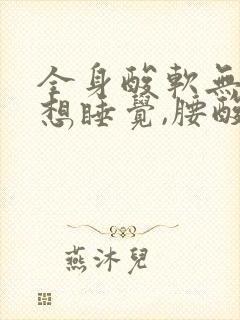 全身酸軟無
想睡覺,腰酸
燕沐兒